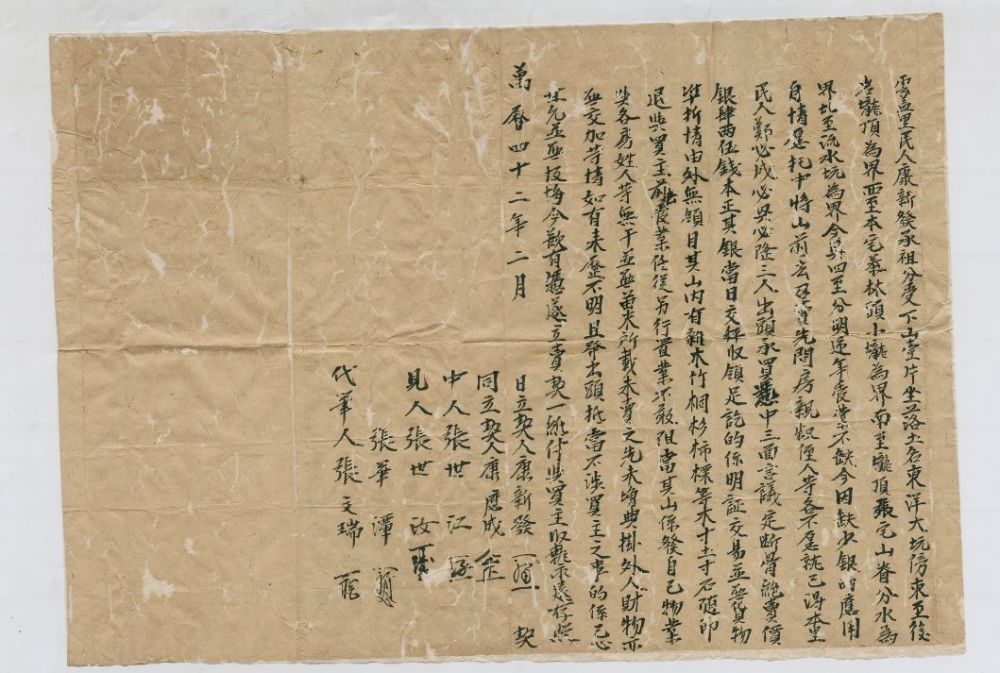 雲蓋里民人康新發承祖分受下山壹片坐落土名東洋大坑傍東至後
崙壠頂為界西至本宅蓁林頭小壠為界南至壠頂張宅山脊分水為
界北至流水坑為界今具四至分明遞年管業不缺今因缺少銀兩應用
自情愿托中將山前去召賣先問房親叔侄人等各不愿就已得本里
民人鄭必成必興必隆三人出頭承買憑中三面言議定斷骨絕賣價
銀肆両伍錢本正其銀當日交秤收領足訖的係明証交易並無貨物
準折情由外無領目其山内有雜木竹桐杉柿樣等木寸土寸石隨即
退與買主前去管業任從另行置業不敢阻當其山係發自己物業
與各房姓人等無干並無苗米所載未賣之先未曾典掛外人財物亦
無交加等情如有来歷不明且發出頭抵當不涉買主之事的係己心
甘允並無反悔今欲有憑遂立賣契一紙付與買主收執永遠存照
萬曆四十二年二月 日立契人康新發 契
同立契人康應成
中人張世江
見人張世汝
張華潭
代筆人張文瑞